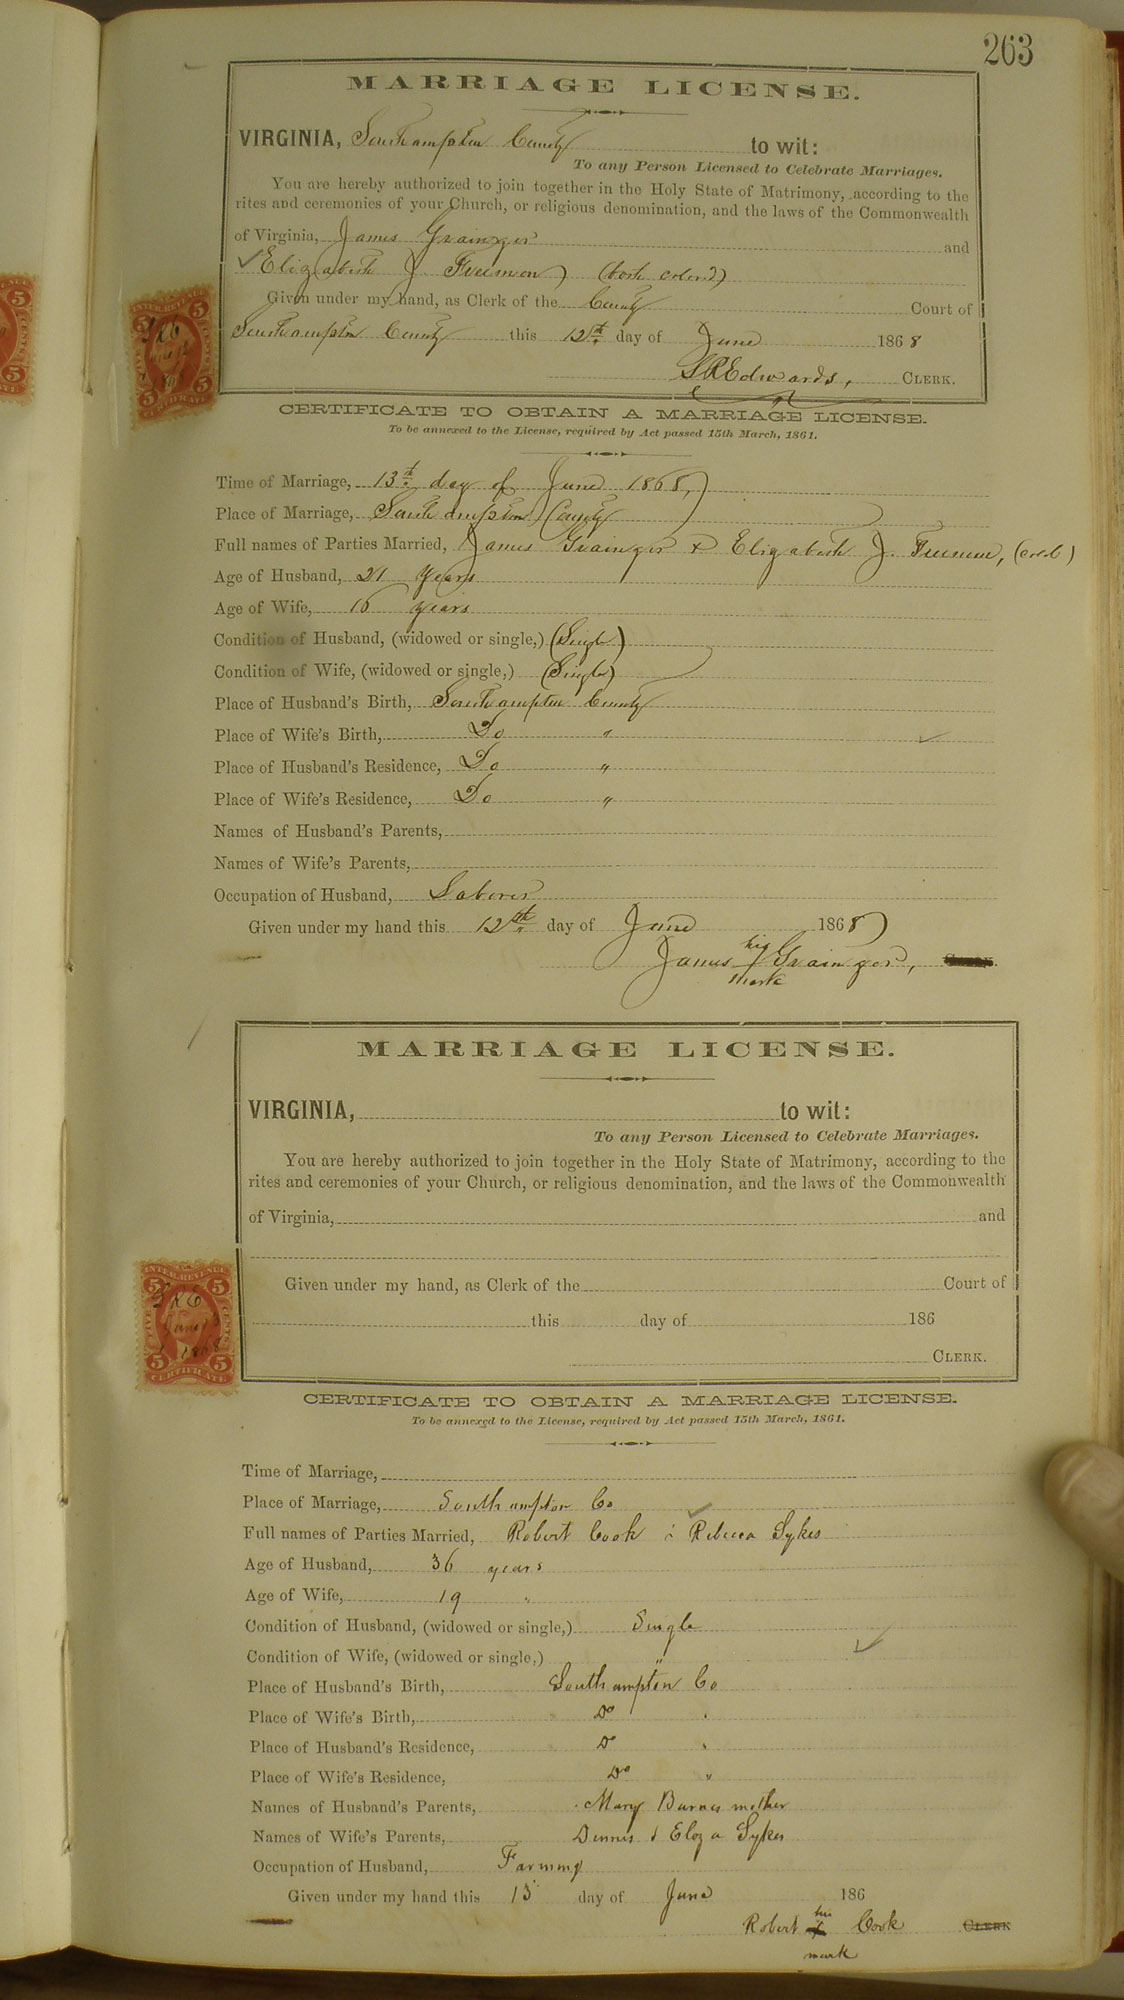 263
MARRIAGE LICENSE.
VIRGINIA, Southampton County to wit:
To any Person Licensed to Celebrate Marriages.
You are hereby authorized to join together in the Holy State of Matrimony, according to the
rites and ceremonies of your Church, or religious denomination, and the laws of the Commonwealth
of Virginia, James Grainger and
Elizabeth J Freeman (both colord)
Given under my hand, as Clerk of the County Court of
Southampton County this 12th day of June 1868
LREdwards, CLERK.
INTER. REVENUE
5 5
FIVE CENTS
5 5
CERTIFICATE
CERTIFICATE TO OBTAIN A MARRIAGE LICENSE.
To be annexed to the License, required by Act passed 15th March, 1861.
Time of Marriage, 13th day of June 1868,
Place of Marriage, Southampton County
Full names of Parties Married, James Grainger & Elizabeth J. Freeman, (cold)
Age of Husband, 21 Years
Age of Wife, 16 years
Condition of Husband, (widowed or single,) (Single)
Condition of Wife, (widowed or single,) (Single)
Place of Husband's Birth, Southampton County
Place of Wife's Birth, Do "
Place of Husband's Residence, Do "
Place of Wife's Residence, Do "
Names of Husband's Parents,
Names of Wife's Parents,
Occupation of Husband, Laborer
Given under my hand this 12th day of June 1868
his
James Grainger,
mark
MARRIAGE LICENSE.
VIRGINIA, to wit:
To any Person Licensed to Celebrate Marriages.
You are hereby authorized to join together in the Holy State of Matrimony, according to the
rites and ceremonies of your Church, or religious denomination, and the laws of the Commonwealth
of Virginia, and
Given under my hand, as Clerk of the Court of
this day of 186
CLERK.
INTER. REVENUE
5 5
LRE
June 13
1868
FIVE CENTS
5 5
CERTIFICATE
CERTIFICATE TO OBTAIN A MARRIAGE LICENSE.
To be annexed to the License, required by Act passed 15th March, 1861.
Time of Marriage,
Place of Marriage, Southampton Co
Full names of Parties Married, Robert Cook & Rebecca Sykes
Age of Husband, 36 years
Age of Wife, 19 "
Condition of Husband, (widowed or single,) Single
Condition of Wife, (widowed or single,) "
Place of Husband's Birth, Southampton Co
Place of Wife's Birth, Do "
Place of Husband's Residence, Do "
Place of Wife's Residence, Do "
Names of Husband's Parents, Mary Barnes mother
Names of Wife's Parents, Dennis & Eliza Sykes
Occupation of Husband, Farming
Given under my hand this 13 day of June 186
his
Robert X Cook CLERK
mark